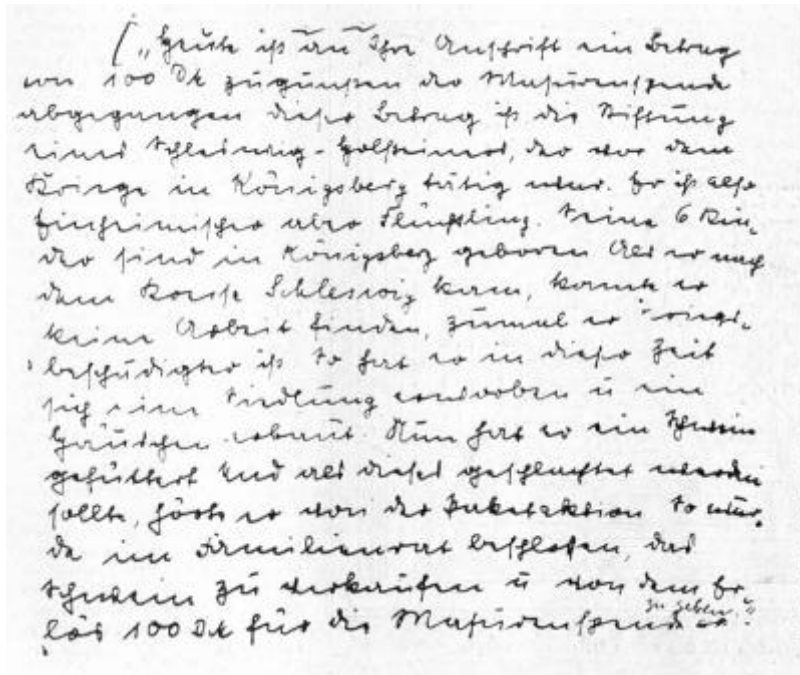 „Heute ist an Ihre Anschrift ein Betrag
von 100 DM zugunsten der Masurenspende
abgegangen dieser Betrag ist die Stiftung
eines Schleswig-Holsteiners, der vor dem
Kriege in Königsberg tätig war. Er ist also
Einheimischer aber Flüchtling. Seine 6 Kin-
der sind in Königsberg geboren Als er nach
dem Kreise Schleswig kam, konnte er
keine Arbeit finden, zumal er Kriegs-
beschädigter ist So hat er in dieser Zeit
sich eine Siedlung erworben u ein
Häuschen erbaut. Nun hat er ein Schwein
gefüttert und als dieses geschlachtet werden
sollte, hörte er von der Paketaktion So wur-
de im Familienrat beschlossen, das
Schwein zu verkaufen u von dem Er-
lös 100 DM für die Masurenspende zu geben."